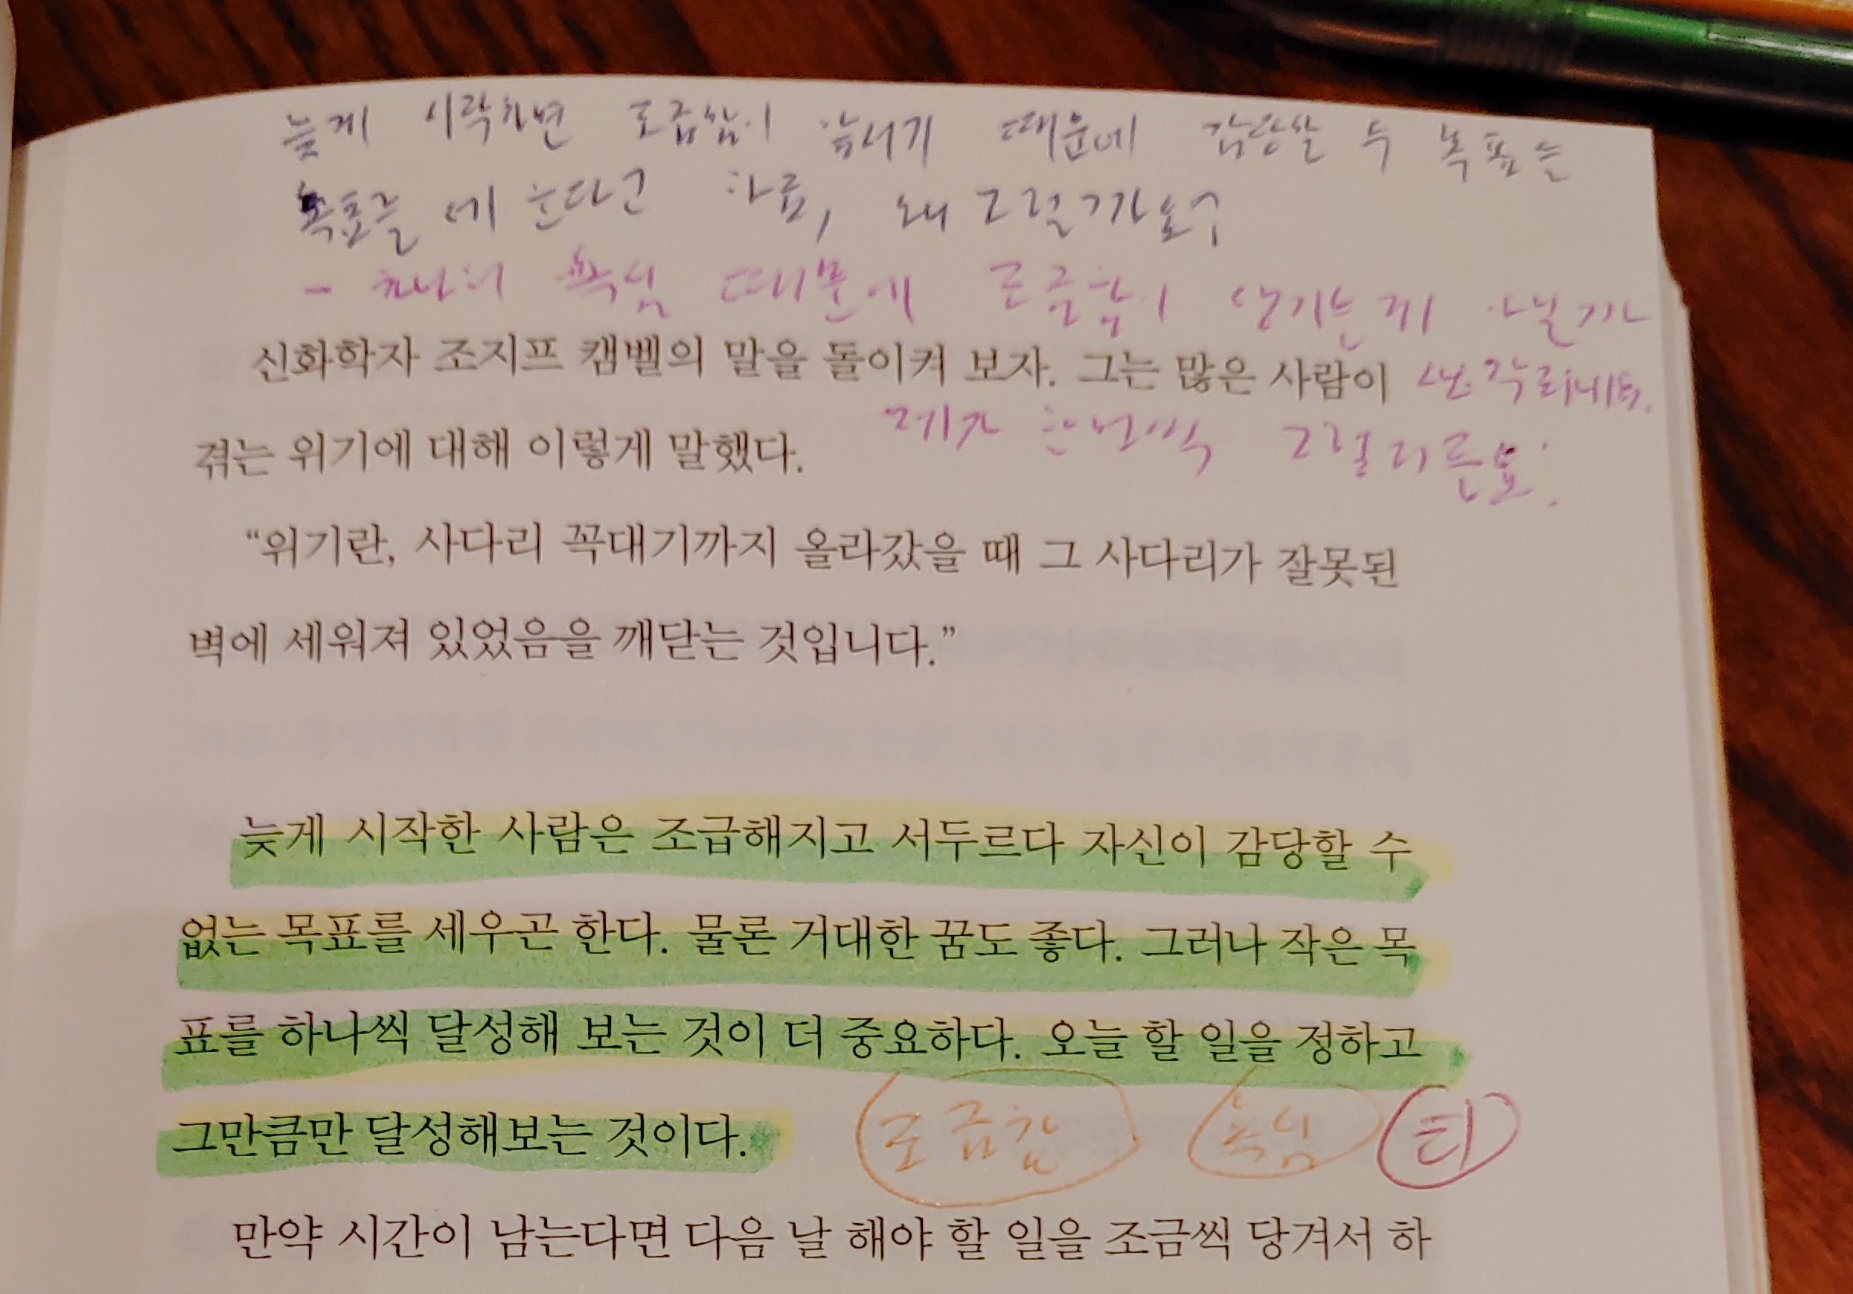 늦게 시작하면 조급함이 앞서기 때문에 감당할 수 목표는
목표를 세운다고 하죠, 왜 그럴까요?
- 욕심 때문에 조급함이 생기는게 아닐까
신화학자 조지프 캠벨의 말을 돌이켜 보자. 그는 많은 사람이 생각되네요.
겪는 위기에 대해 이렇게 말했다. 제가 한번씩 그렇거든요.
“위기란, 사다리 꼭대기까지 올라갔을 때 그 사다리가 잘못된
벽에 세워져 있었음을 깨닫는 것입니다.”
늦게 시작한 사람은 조급해지고 서두르다 자신이 감당할 수
없는 목표를 세우곤 한다. 물론 거대한 꿈도 좋다. 그러나 작은 목
표를 하나씩 달성해 보는 것이 더 중요하다. 오늘 할 일을 정하고
그만큼만 달성해보는 것이다. 조급함 욕심
만약 시간이 남는다면 다음 날 해야 할 일을 조금씩 당겨서 하